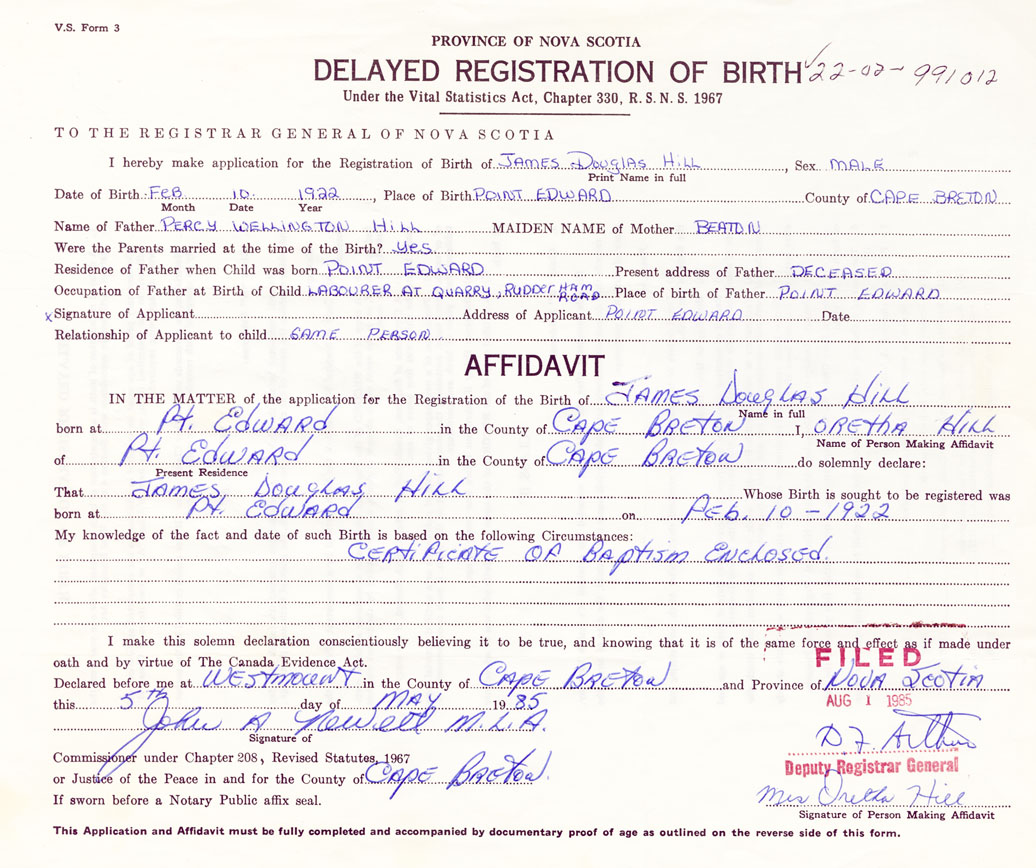 V.S. Form 3
PROVINCE OF NOVA SCOTIA
DELAYED REGISTRATION OF BIRTH 22-02-991012
Under the Vital Statistics Act, Chapter 330, R.S.N.S. 1967
TO THE REGISTRAR GENERAL OF NOVA SCOTIA
I hereby make application for the Registration of Birth of JAMES DOUGLAS HILL, Sex MALE
Print Name in full
Date of Birth FEB. 10 1922, Place of Birth POINT EDWARD County of CAPE BRETON
Month Date Year
Name of Father PERCY WELLINGTON HILL MAIDEN NAME of Mother BEATON
Were the Parents married at the time of the Birth? yes
Residence of Father when Child was born POINT EDWARD Present address of Father DECEASED
Occupation of Father at Birth of Child LABOURER AT QUARRY, RUDDERHAM ROAD Place of birth of Father POINT EDWARD
x Signature of Applicant Address of Applicant POINT EDWARD Date
Relationship of Applicant to child SAME PERSON
AFFIDAVIT
IN THE MATTER of the application for the Registration of the Birth of JAMES DOUGLAS HILL
Name in full
born at Pt. EDWARD in the County of CAPE BRETON I, ORETHA HILL
Name of Person Making Affidavit
of Pt. EDWARD in the County of CAPE BRETON do solemnly declare:
Present Residence
That JAMES DOUGLAS HILL Whose Birth is sought to be registered was
born at Pt. EDWARD on FEB. 10 - 1922
My knowledge of the fact and date of such Birth is based on the following Circumstances:
CERTIFICATE OF BAPTISM ENCLOSED.
I make this solemn declaration conscientiously believing it to be true, and knowing that it is of the same force and effect as if made under
oath and by virtue of The Canada Evidence Act.
FILED
Declared before me at WESTMOUNT in the County of CAPE BRETON and Province of NOVA SCOTIA
this 5th day of MAY 1985
AUG 1 1985
John A Newell M.L.A.
Signature of
D F. Arthur
Commissioner under Chapter 208, Revised Statutes, 1967
Deputy Registrar General
or Justice of the Peace in and for the County of CAPE BRETON.
If sworn before a Notary Public affix seal.
Mrs Oretha Hill
Signature of Person Making Affidavit
This Application and Affidavit must be fully completed and accompanied by documentary proof of age as outlined on the reverse side of this form.